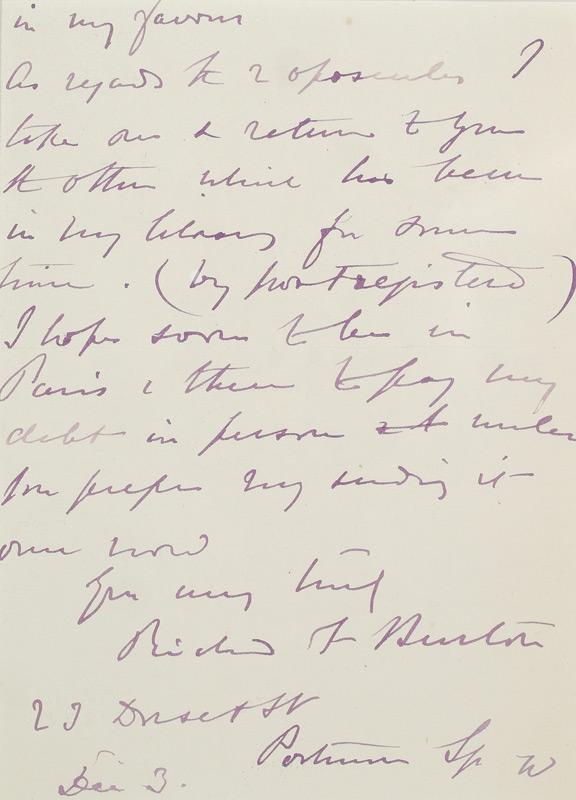 in my favour
As regards the 2 opuscules I
take one & return to you
the other which has been
in my library for some
time. (by post registered)
I hope soon to be in
Paris & then to pay my
debt in person unless
you prefer my sending it
over now
Yrs very truly
Richard F Burton
23 Dorset St
Portman Sq W
Dec 3.